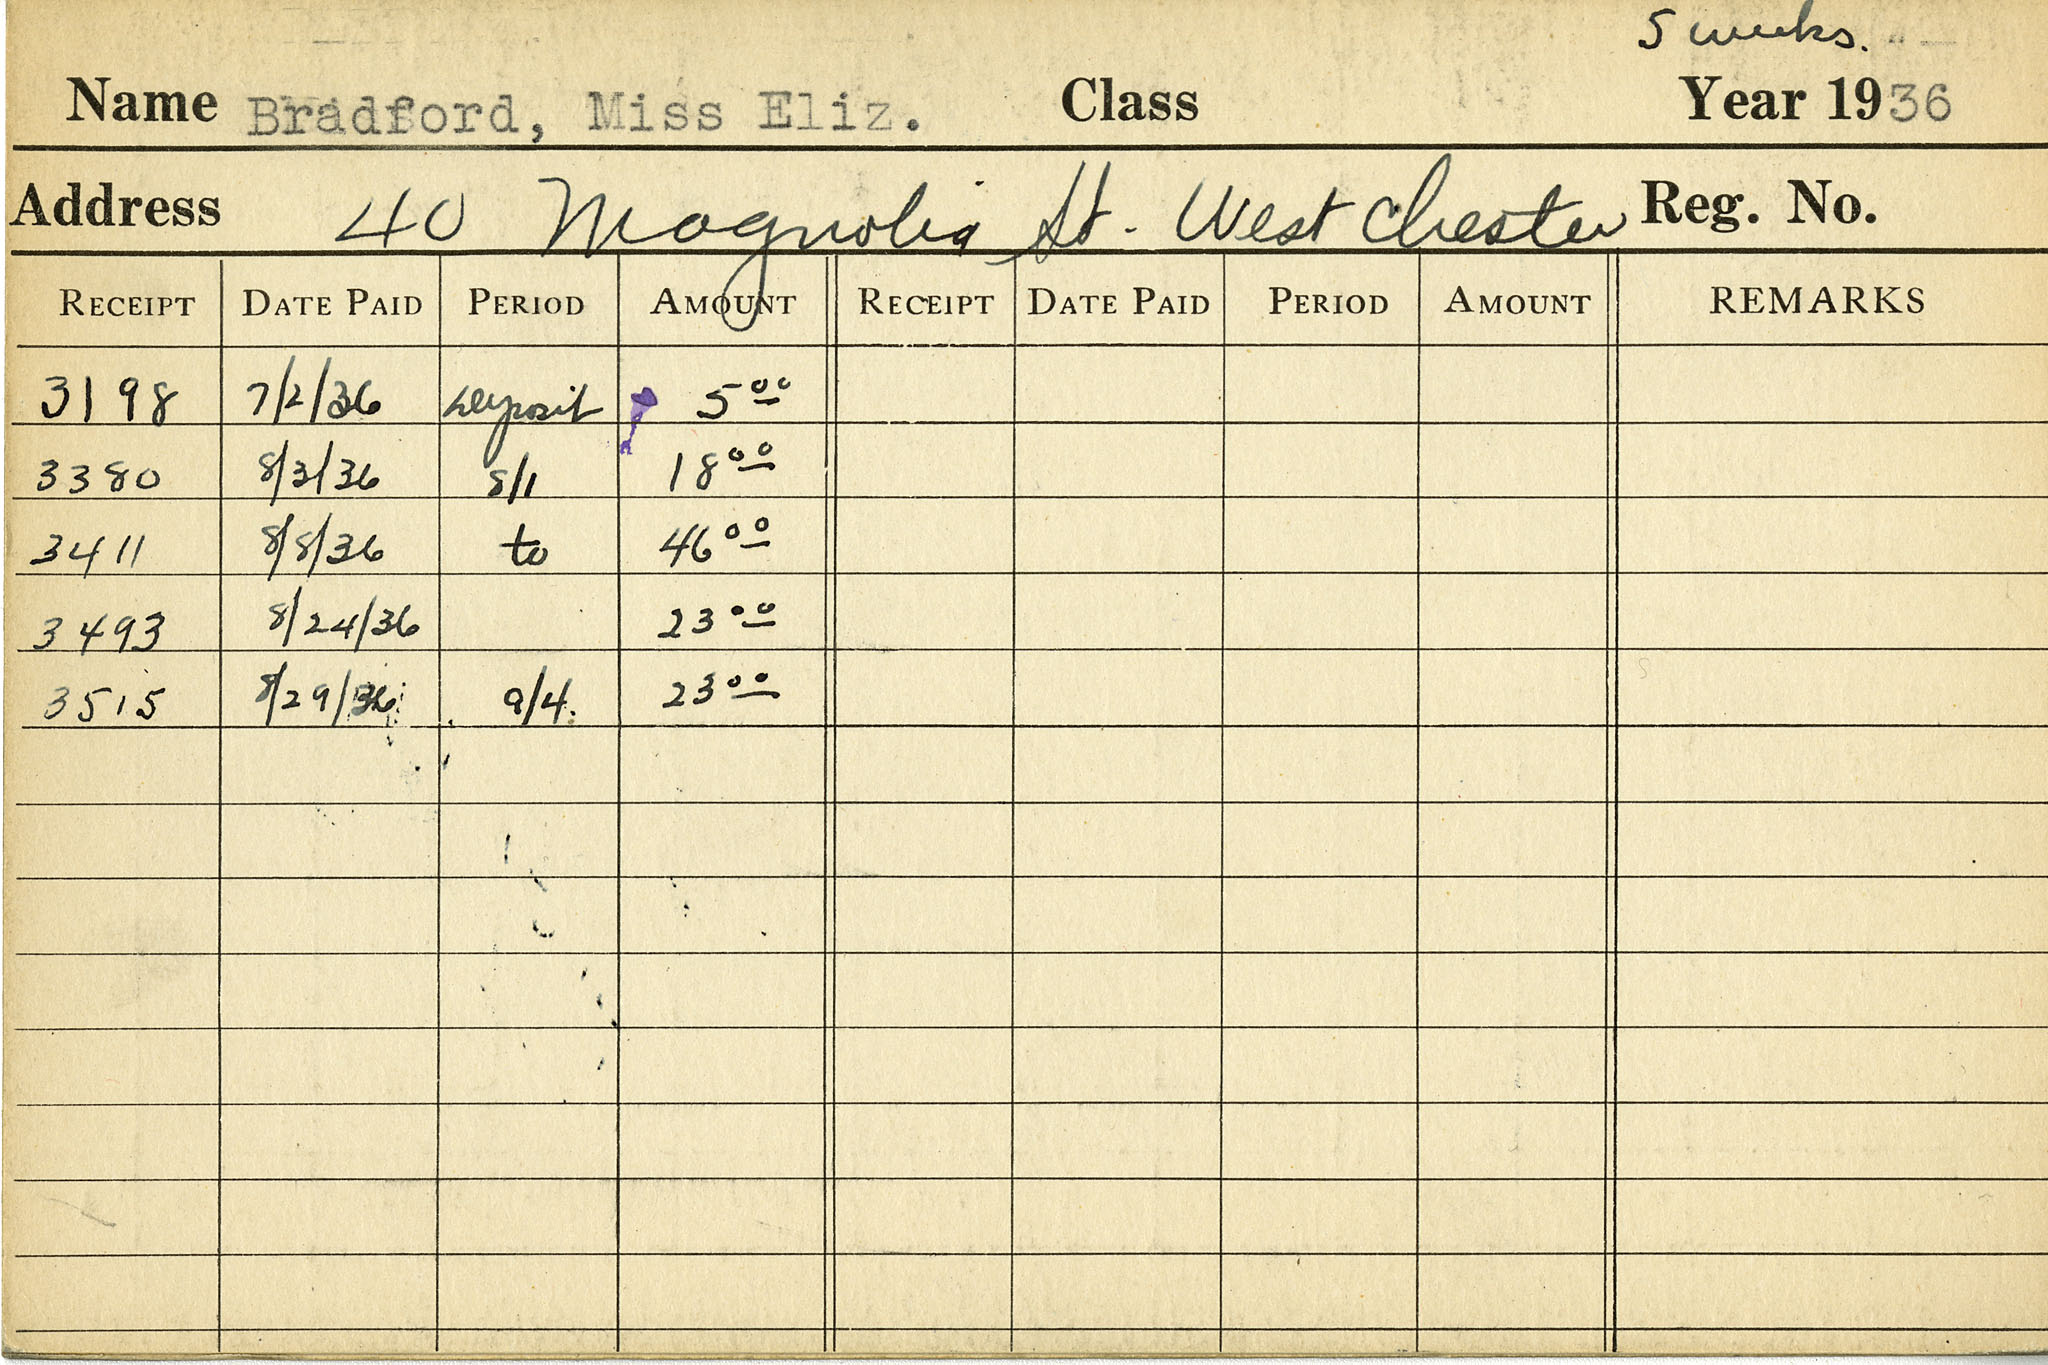 5 weeks.
Name Bradford, Miss Eliz. Class Year 1936
Address 40 Magnolia St. West Chester Reg. No.
RECEIPT DATE PAID PERIOD AMOUNT RECEIPT DATE PAID PERIOD AMOUNT REMARKS
3198 7/2/36 Deposit 5 00
3380 8/3/36 8/1 18 00
3411 8/8/36 to 46 00
3493 8/24/36 23 00
3515 8/29/36 9/4. 23 00